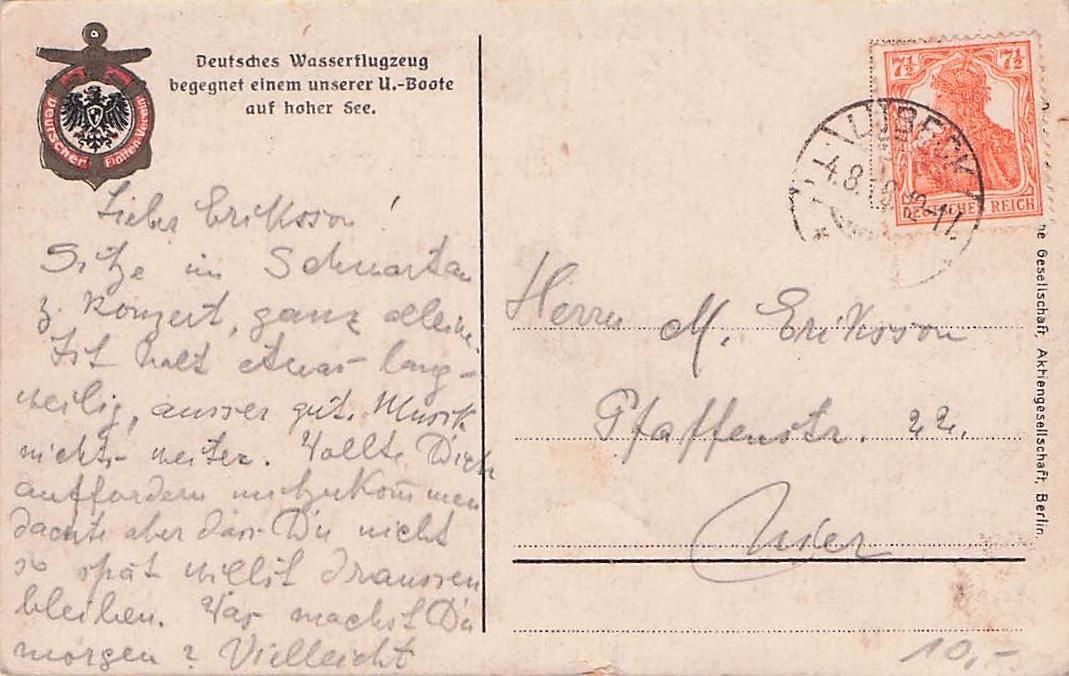 Deutscher Flotten-Verein
Deutsches Wasserflugzeug
begegnet einem unserer U.-Boote
auf hoher See.
Lieber Eriksson!
Sitze im Schwartau
z. Konzert, ganz alleine.
Ist halt etwas lang-
weilig, ausser gut. Musik
nichts weiter. Wollte Dich
auffordern mitzukommen
dachte aber dass Du nicht
so spät willst draussen
bleiben. Was machst Du
morgen? Vielleicht
7½ 7½
DEUTSCHES REICH
LÜBECK
4.8.
Herrn
M. Eriksson
Pfaffenstr. 22.
10,-
Gesellschaft, Aktiengesellschaft, Berlin.